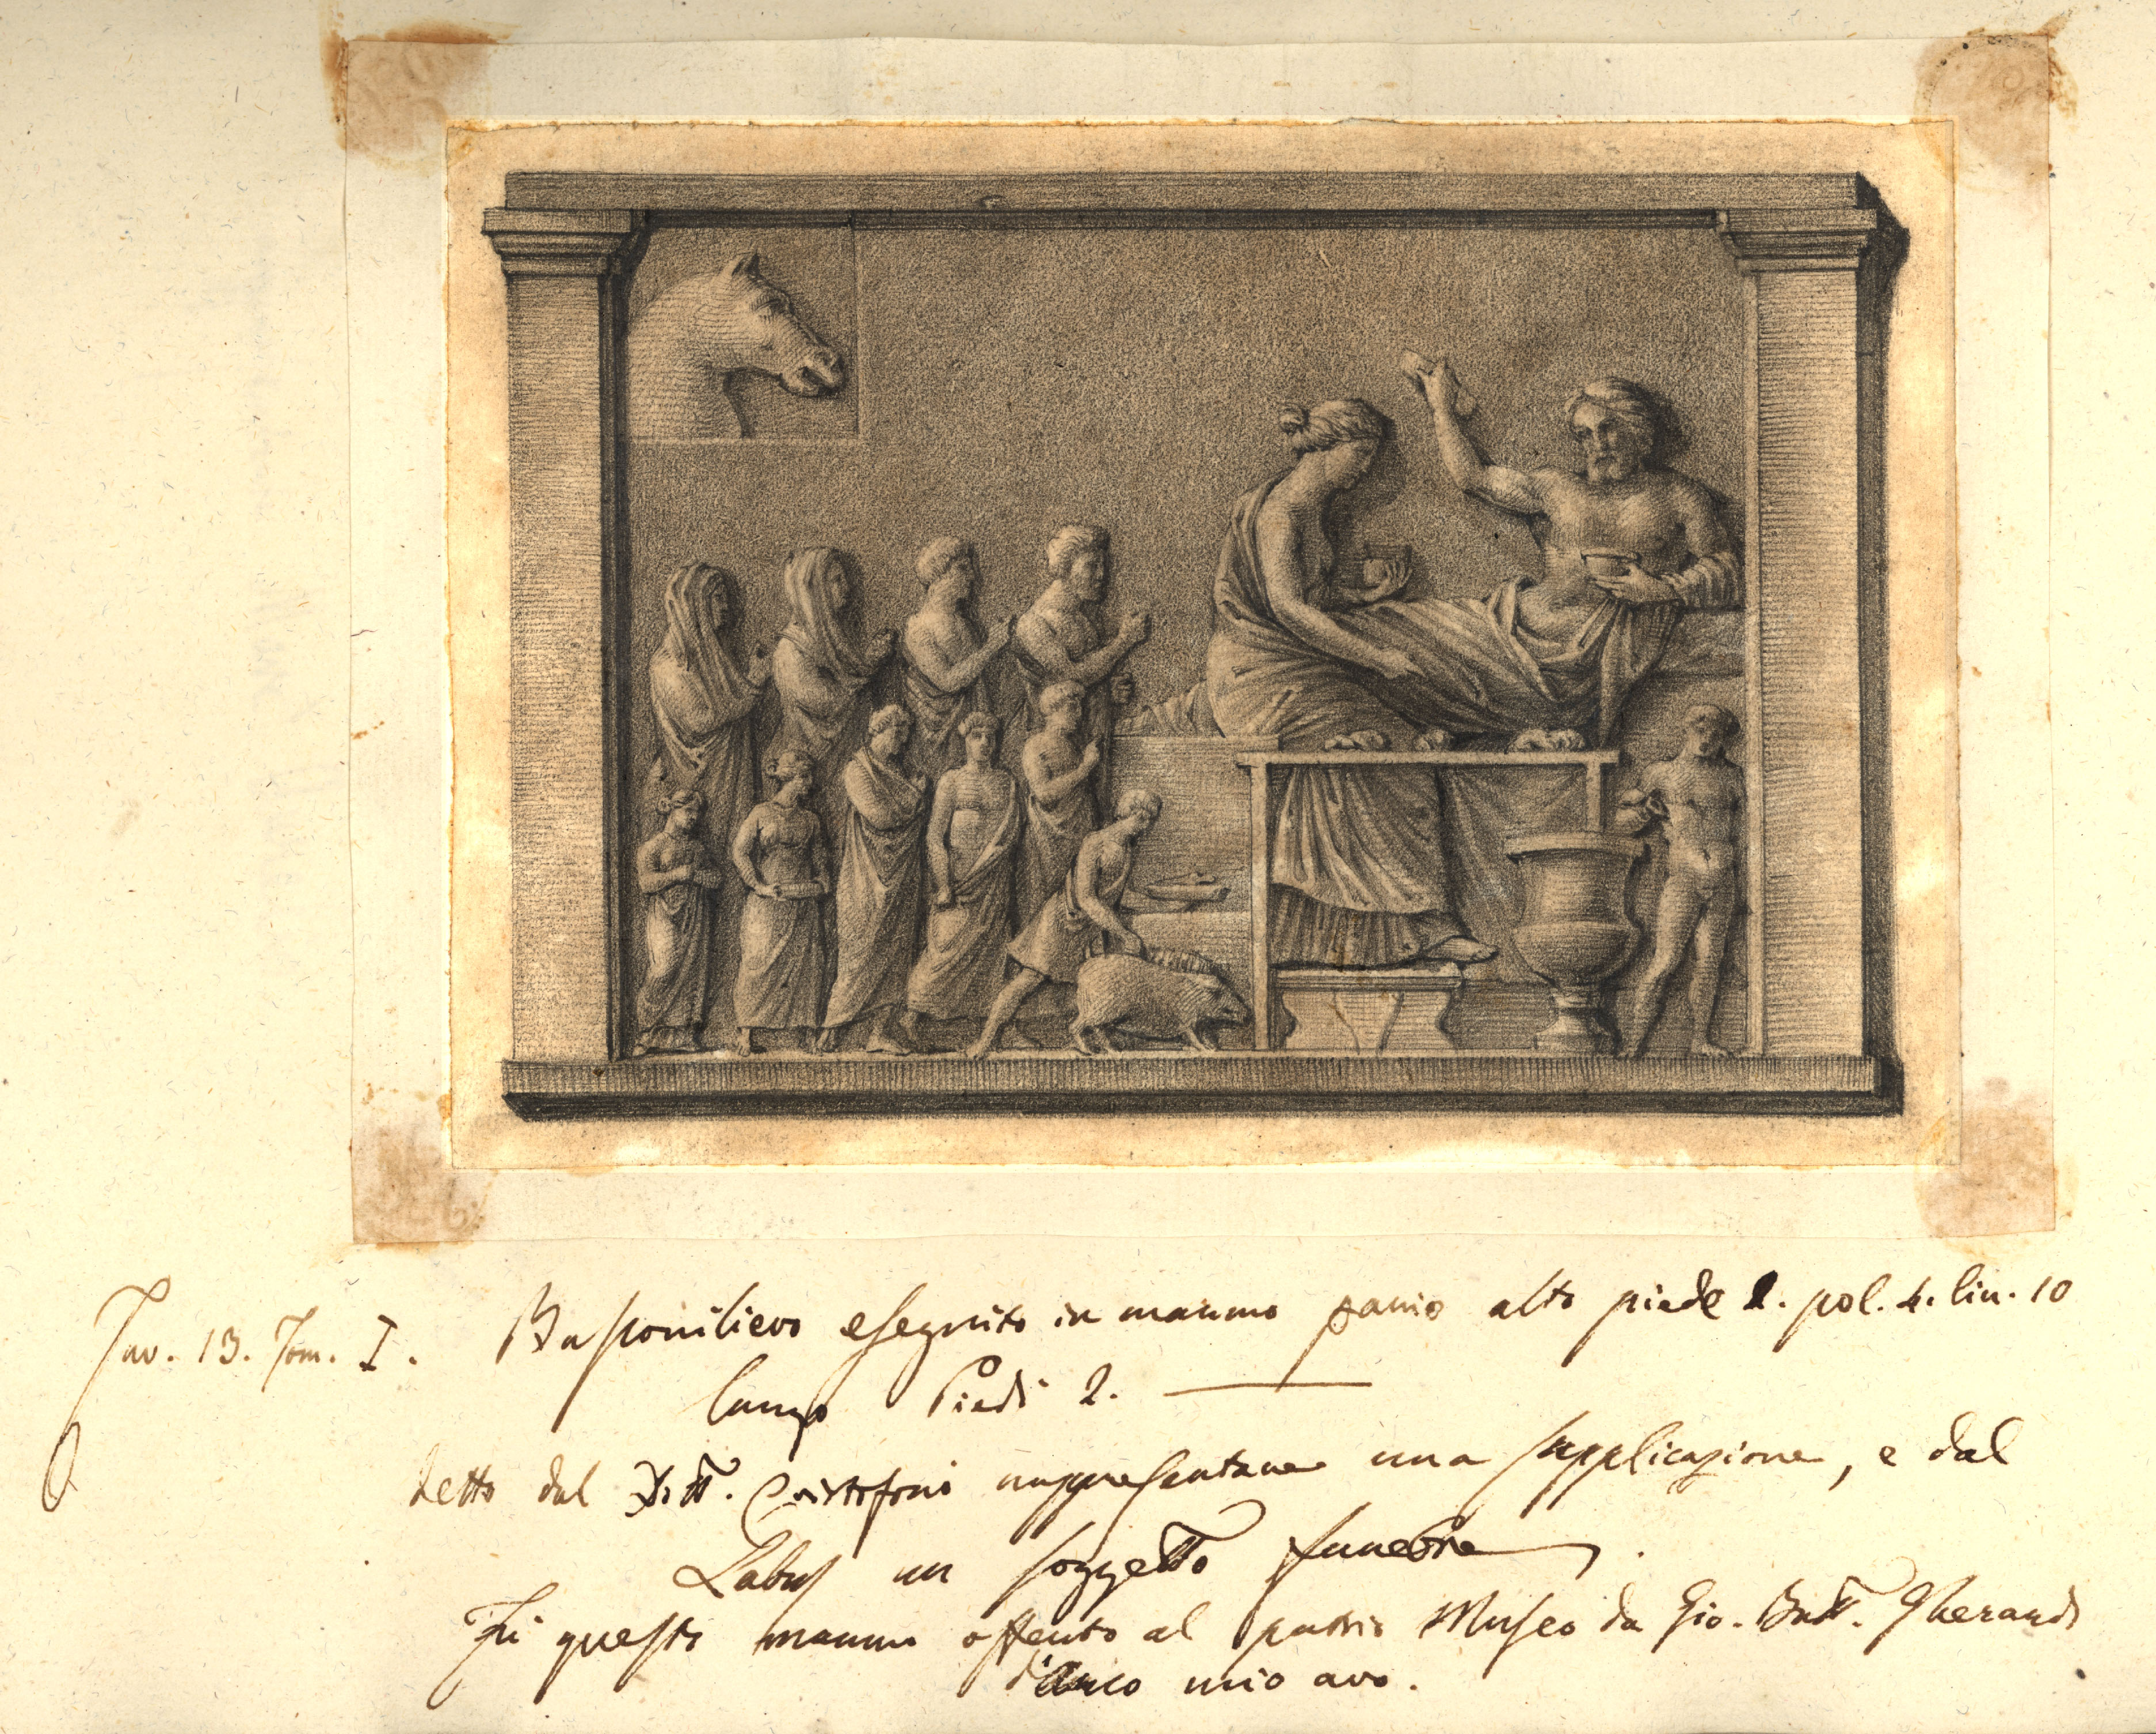 Tav. 13. Tom. I. Bassorilievo eseguito in marmo pario alto piede 1. pol. 4. lin. 10
lungo Piedi 2.
detto dal Dott. Cristofori rappresentare una supplicazione, e dal
Labus un soggetto funebre.
Fu questo marmo offerto al patrio Museo da Gio. Batt. Gherardi
d'Arco mio avo.